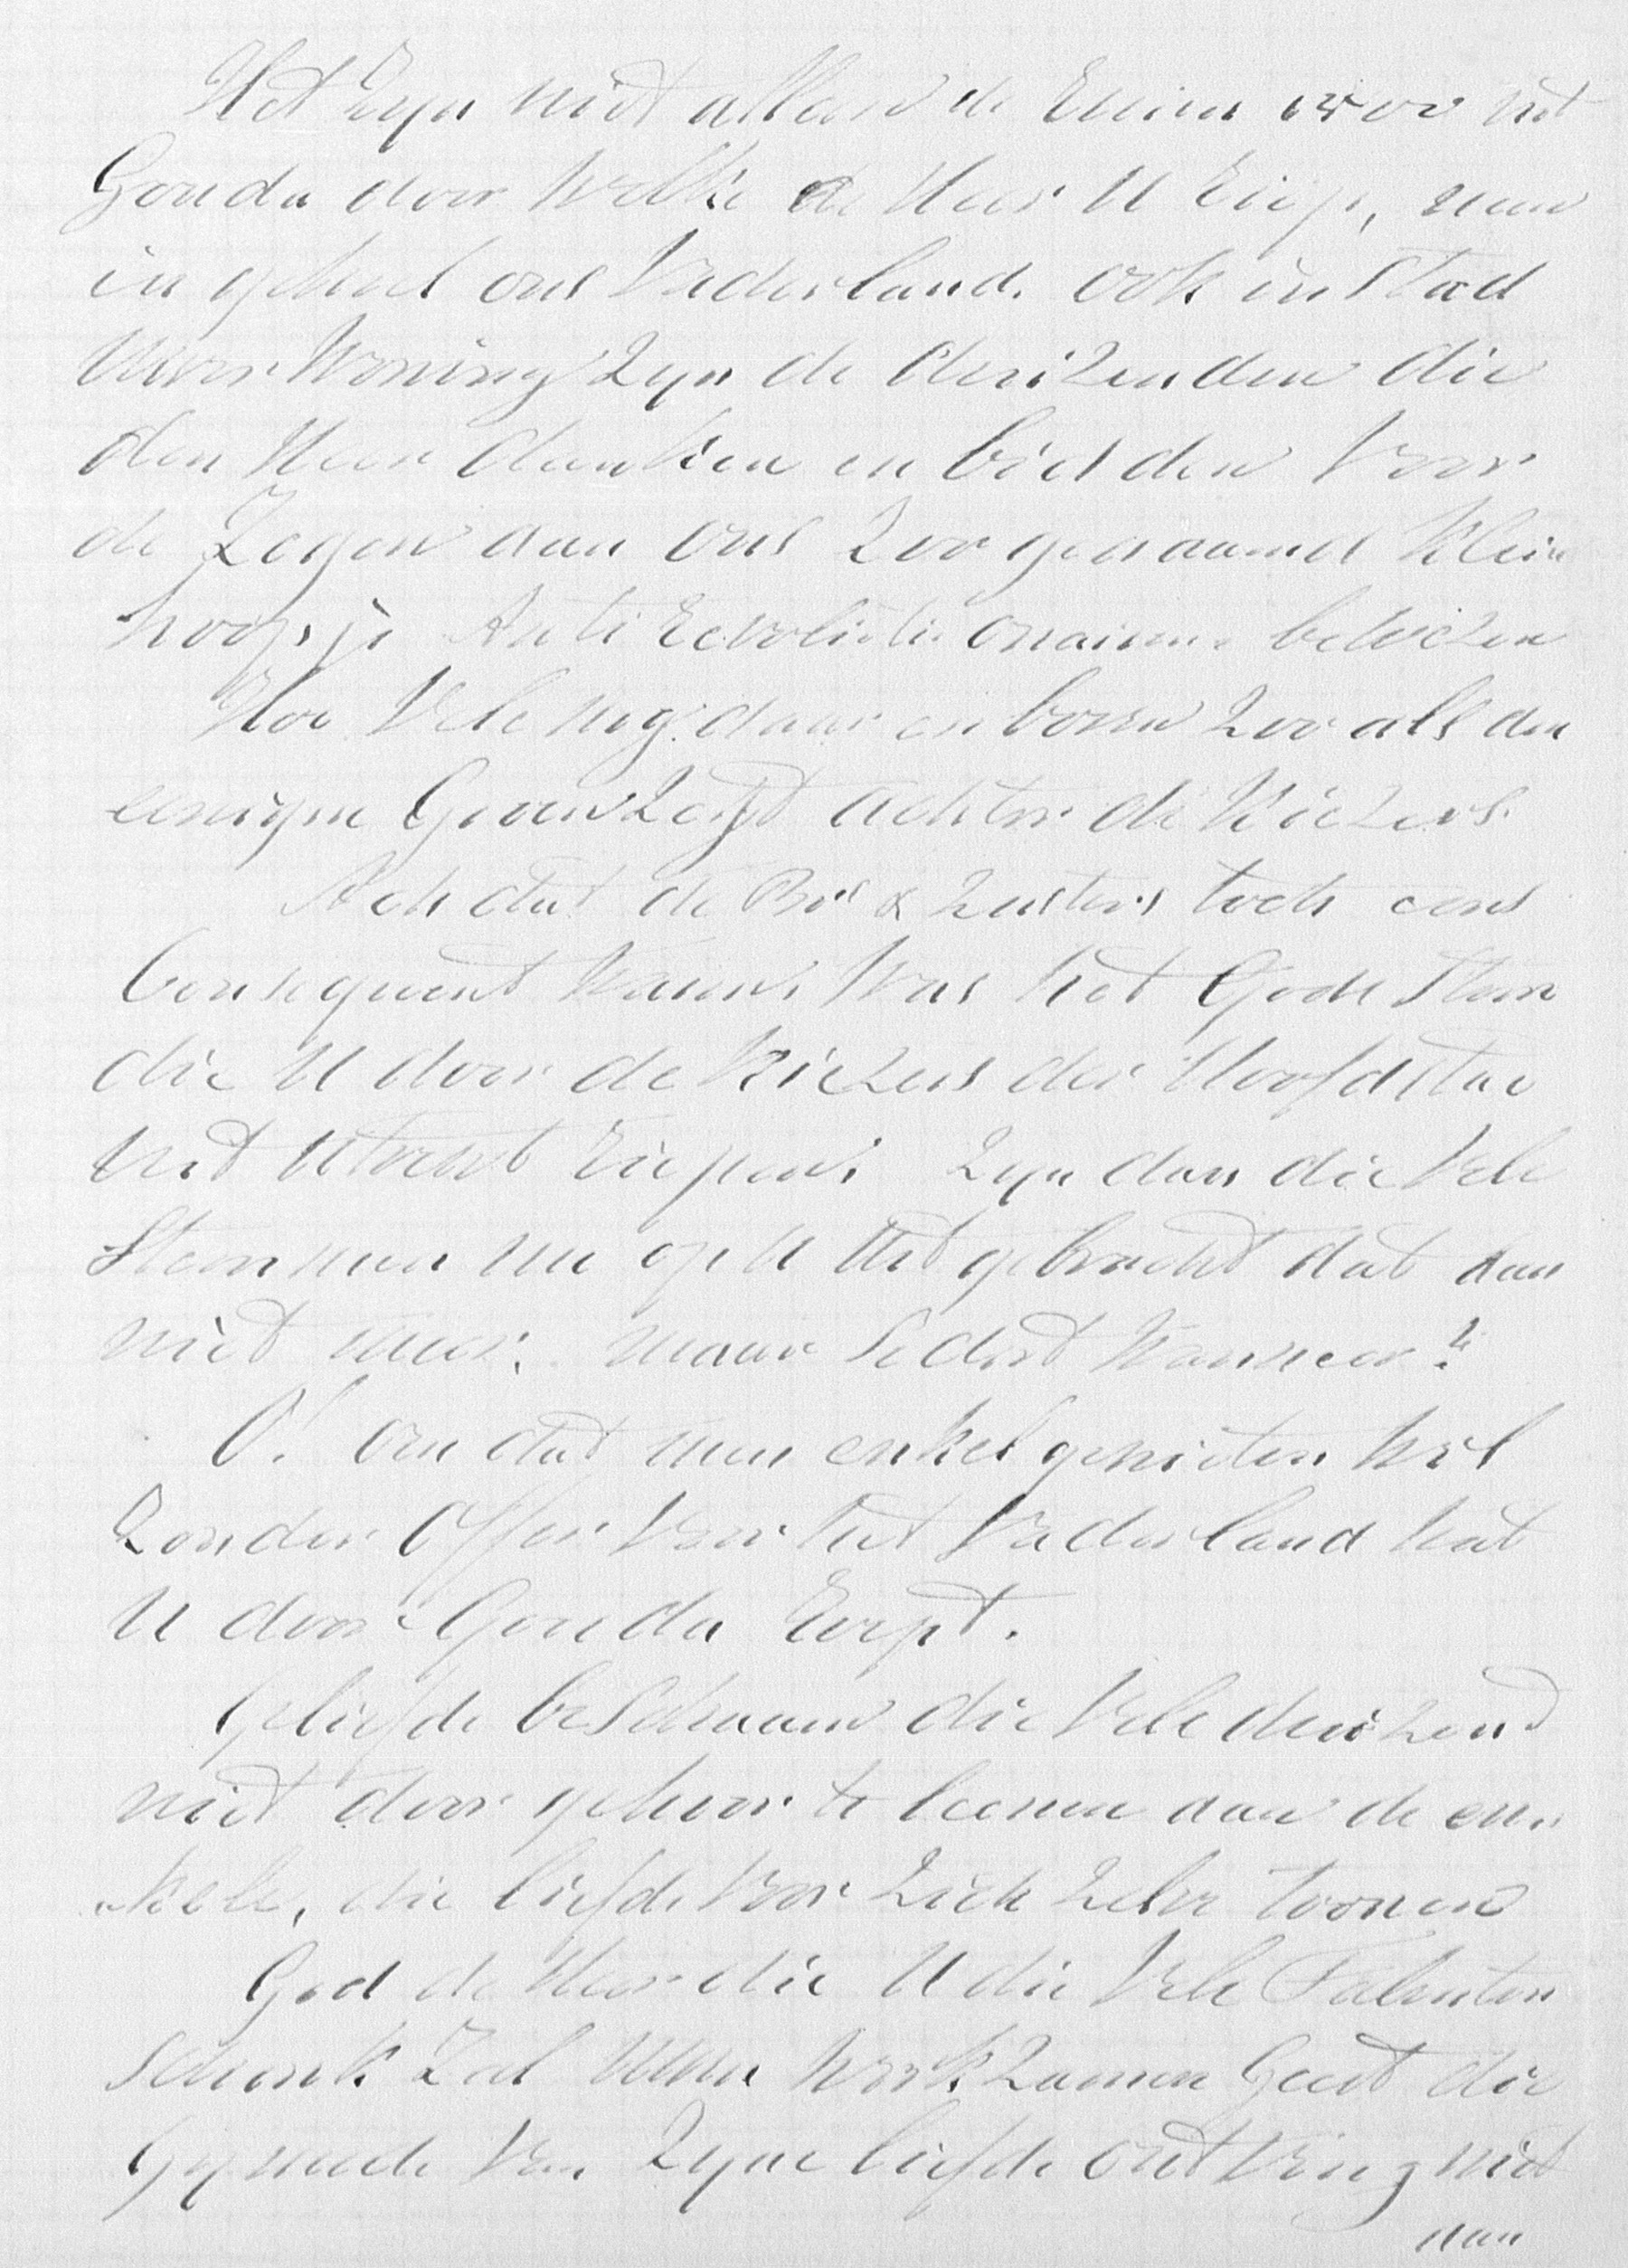 Het zyn niet alleen de Eenen uit
Gouda door welke de Heer U riep, neen
in geheel ons Vaderland. ook in stad
Uwer Woning zyn de duizenden die
den Heer danken en bidden voor
de Zegen aan ons zoo genaamd klein
hoopje Anti Revolutionairen bewezen
Hoe Vele nog daar en boven zoo als den
eenigen Groen Zegt achter de Kiezers.
Ach dat de Brs & Zusters toch eens
Consequent waren, was het Gods Stem
die U door de Kiezers der Hoofdstad
uit Utrecht riepen, zyn dan die Vele
Stemmen nu op U Uit gebracht dat dan
niet meer, maar sedert wanneer?
O! om dat men enkel genieten wil
zonder Offer voor het Vaderland wat
U door Gouda roept.
Geliefde beschaam die Vele duizend
niet door gehoor te leenen aan de en„
„kele, die liefde voor zich zelve toonen
God de Heer die U die Vele Talenten
schonk Zal Uwen werkzamen Geest die
Gy mede van Zyne liefde ontving niet
aan